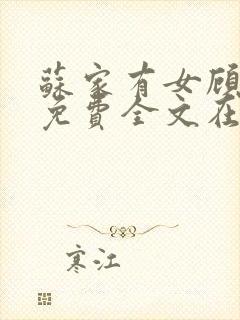 蘇家有女顾
免費全文在
寒江